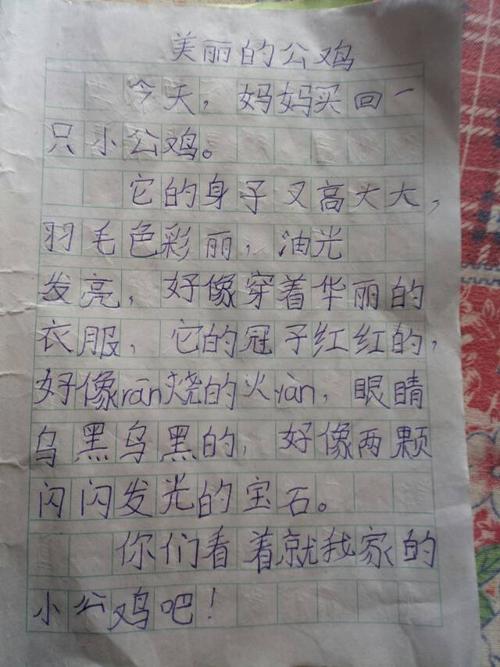 美丽的公鸡
今天，妈妈买回一
只小公鸡。
它的身子又高大大，
羽毛色彩丽，油光
发亮，好像穿着华丽的
衣服，它的冠子红红的，
好像rān烧的火yàn，眼睛
乌黑乌黑的，好像两颗
闪闪发光的宝石。
你们看着就我家的
小公鸡吧！